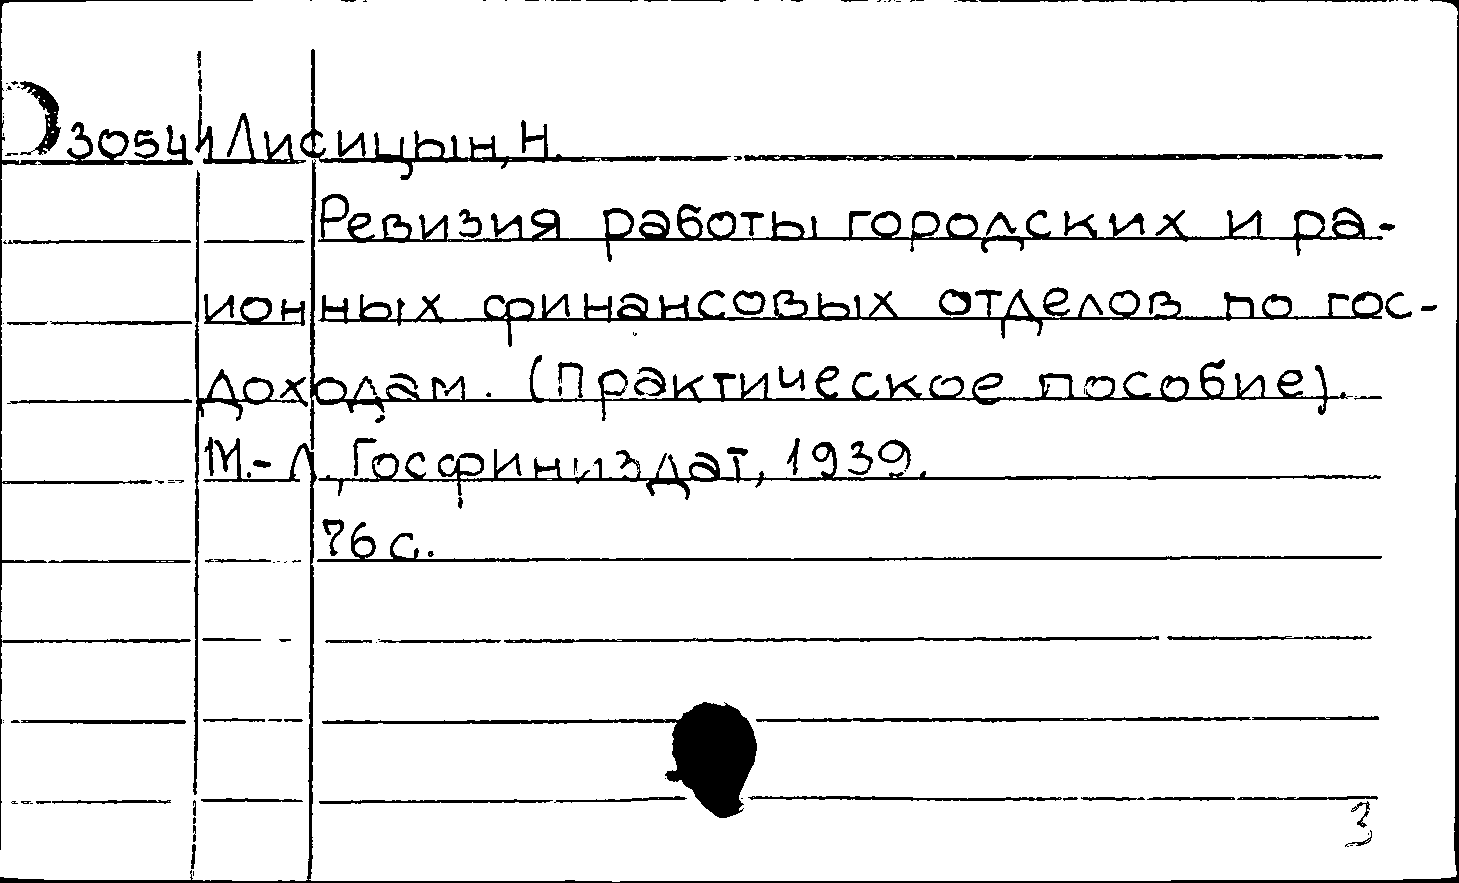 30541 Лисицын, Н.
Ревизия работы городских и ра-
ионных финансовых отделов по гос-
доходам. (Практическое пособие).
М.-Л., Госфиниздат, 1939.
76 с.
3